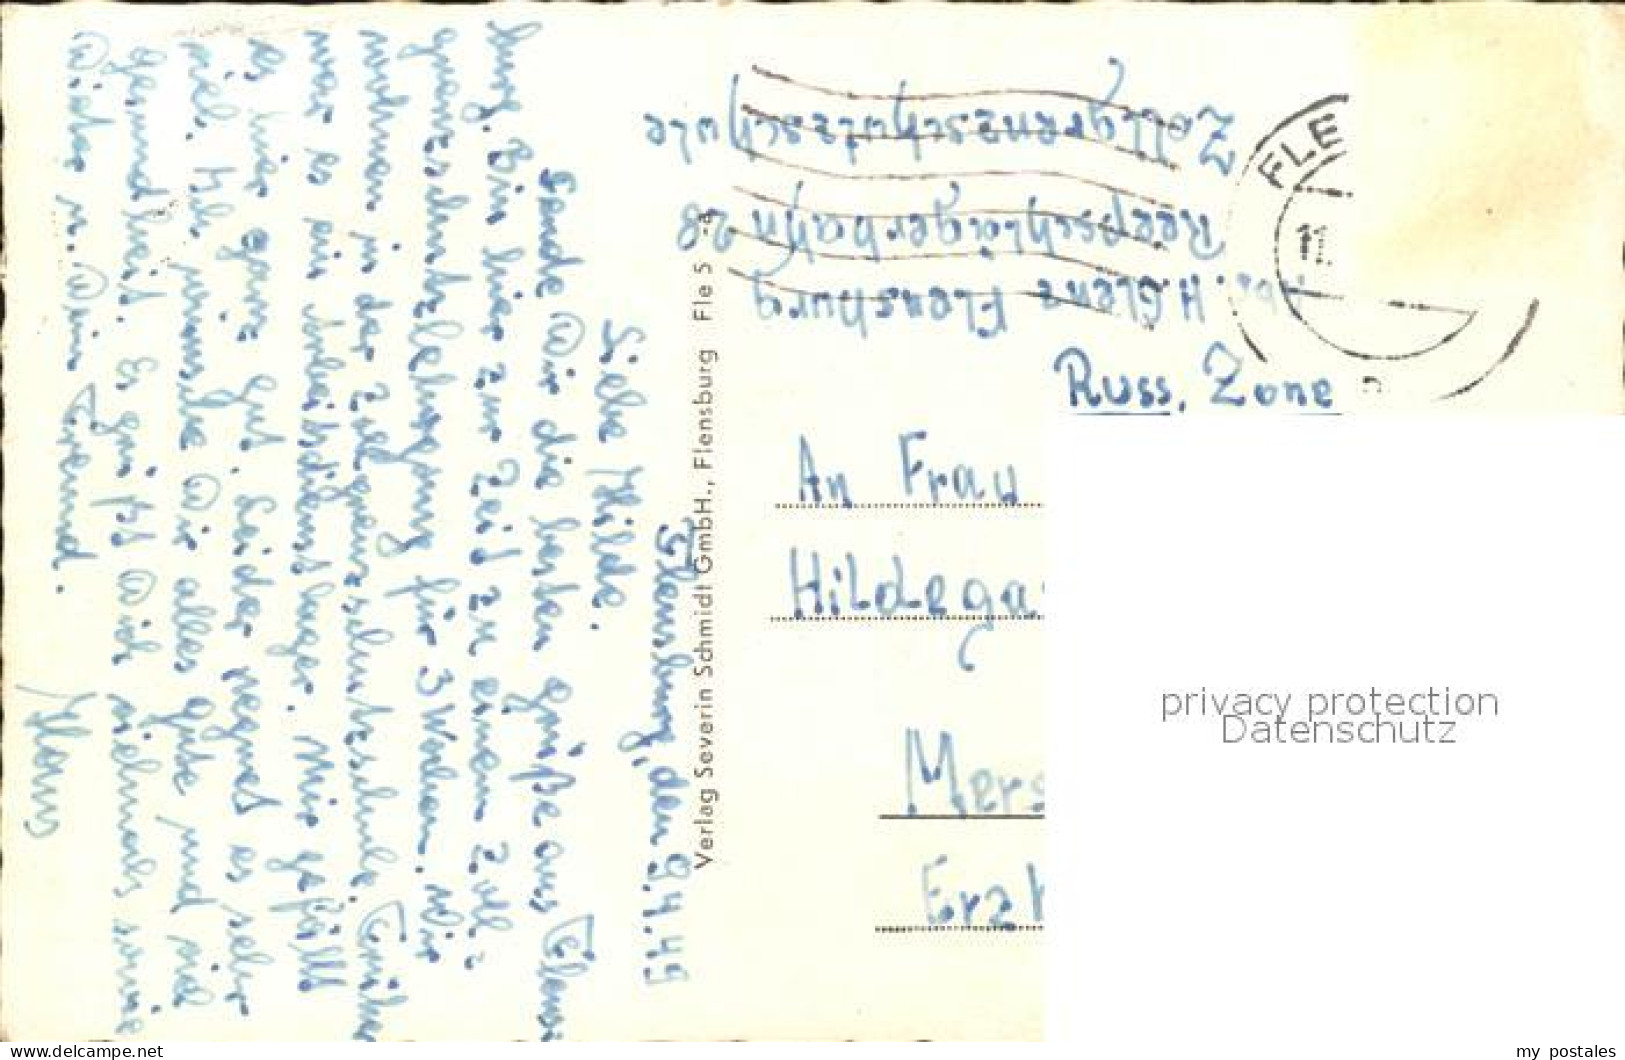 Flensburg, den 9.4.49
Liebe Hilde.
Sende Dir die besten Grüße aus Flens-
burg. Bin hier zur Zeit zu einem Zoll-
grenzschutzlehrgang für 3 Wochen. Wir
wohnen in der Zollgrenzschutzschule. Früher
war es ein Arbeitsdienstlager. Mir gefällt
es hier ganz gut. Leider regnet es sehr
viel. Ich wünsche Dir alles gute und viel
gesundheit. Es grüßt Dich vielmals sowie
Dieter u. Dein Freund.
Hans
Verlag Severin Schmidt GmbH., Flensburg Fle 5 a
Abs. H. Glenz Flensburg
Reepschlägerbahn 28
Zollgrenzschutzschule
FLE
11.
Russ. Zone
An Frau
Hildega
Mers
Erz
privacy protection
Datenschutz
www.delcampe.net
my_postales